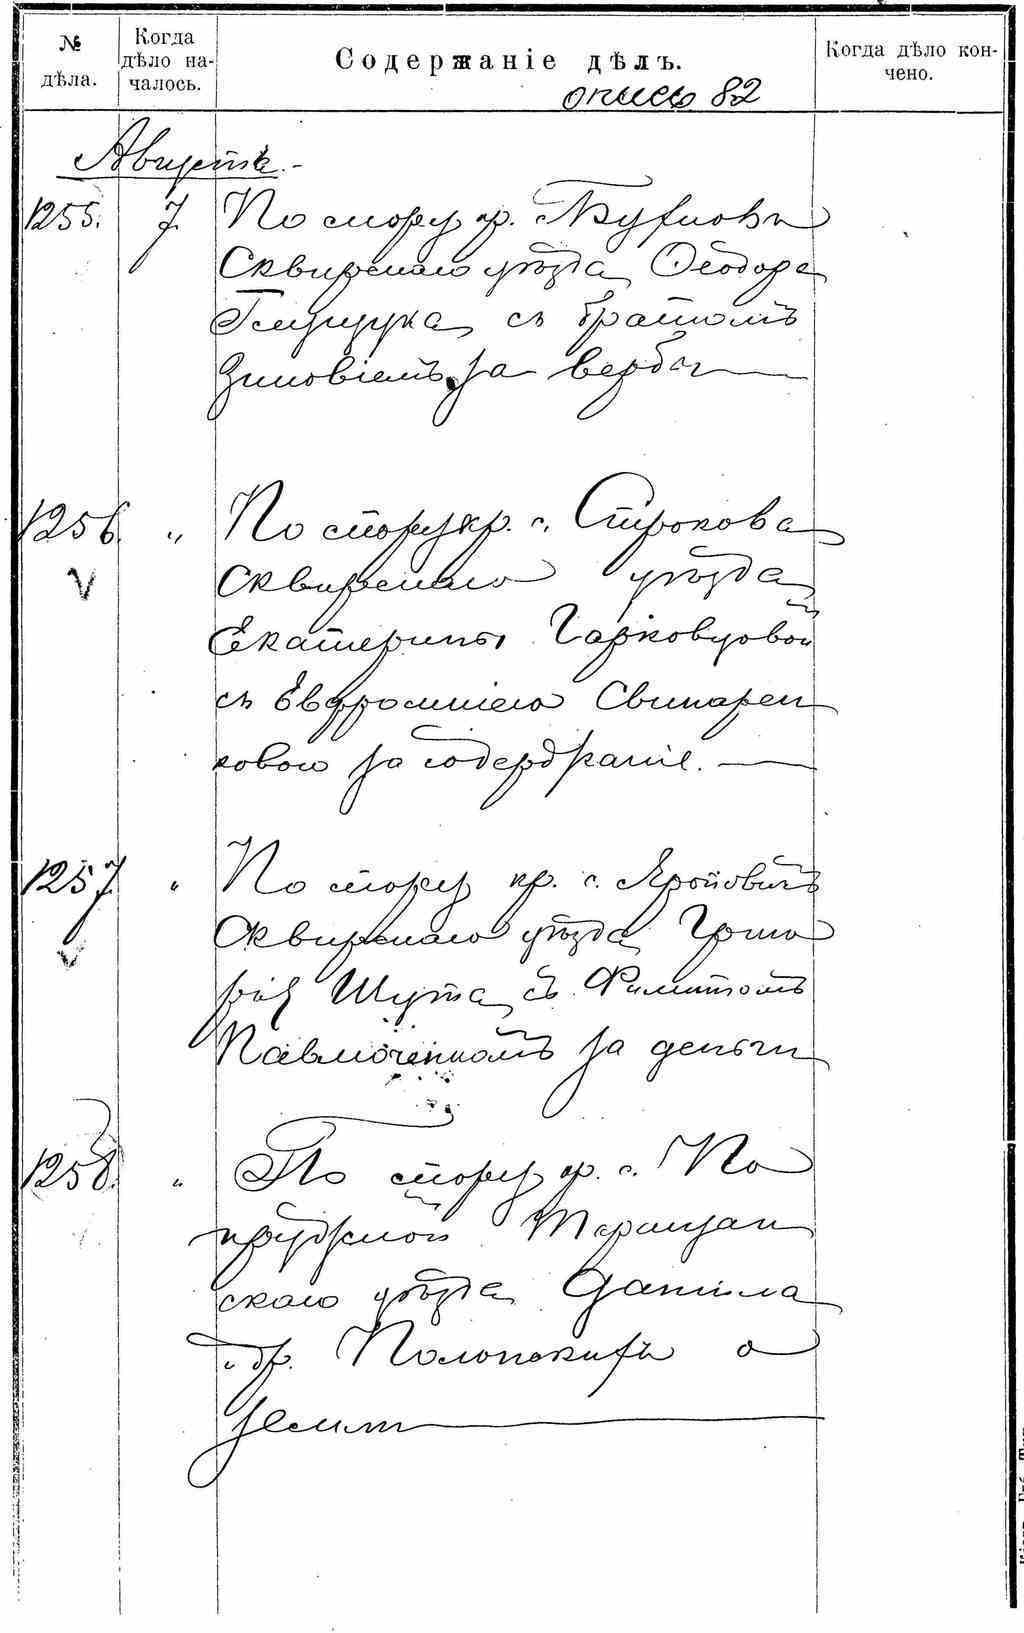 № дѣла.
Когда дѣло началось.
Содержаніе дѣлъ.
Когда дѣло кончено.
опись 82
Августа
1255. 7 По спору кр.
Сквирскаго уѣзда Ѳеодора
съ братомъ
Зиновіемъ за вербы
1256. „ По спору кр. с. Строкова
Сквирскаго уѣзда
Екатерины Гарковцовой
съ Евфросиніею Свинарен
ковою за содержаніе.
1257 „ По спору кр. с. Яроповичъ
Сквирскаго уѣзда Григо
рія Шута съ Филиппомъ
Павлюченкомъ за деньги
1258. „ По спору кр. с. По
пружной Таращан
скаго уѣзда Данила
и др. Полонскихъ о
землѣ